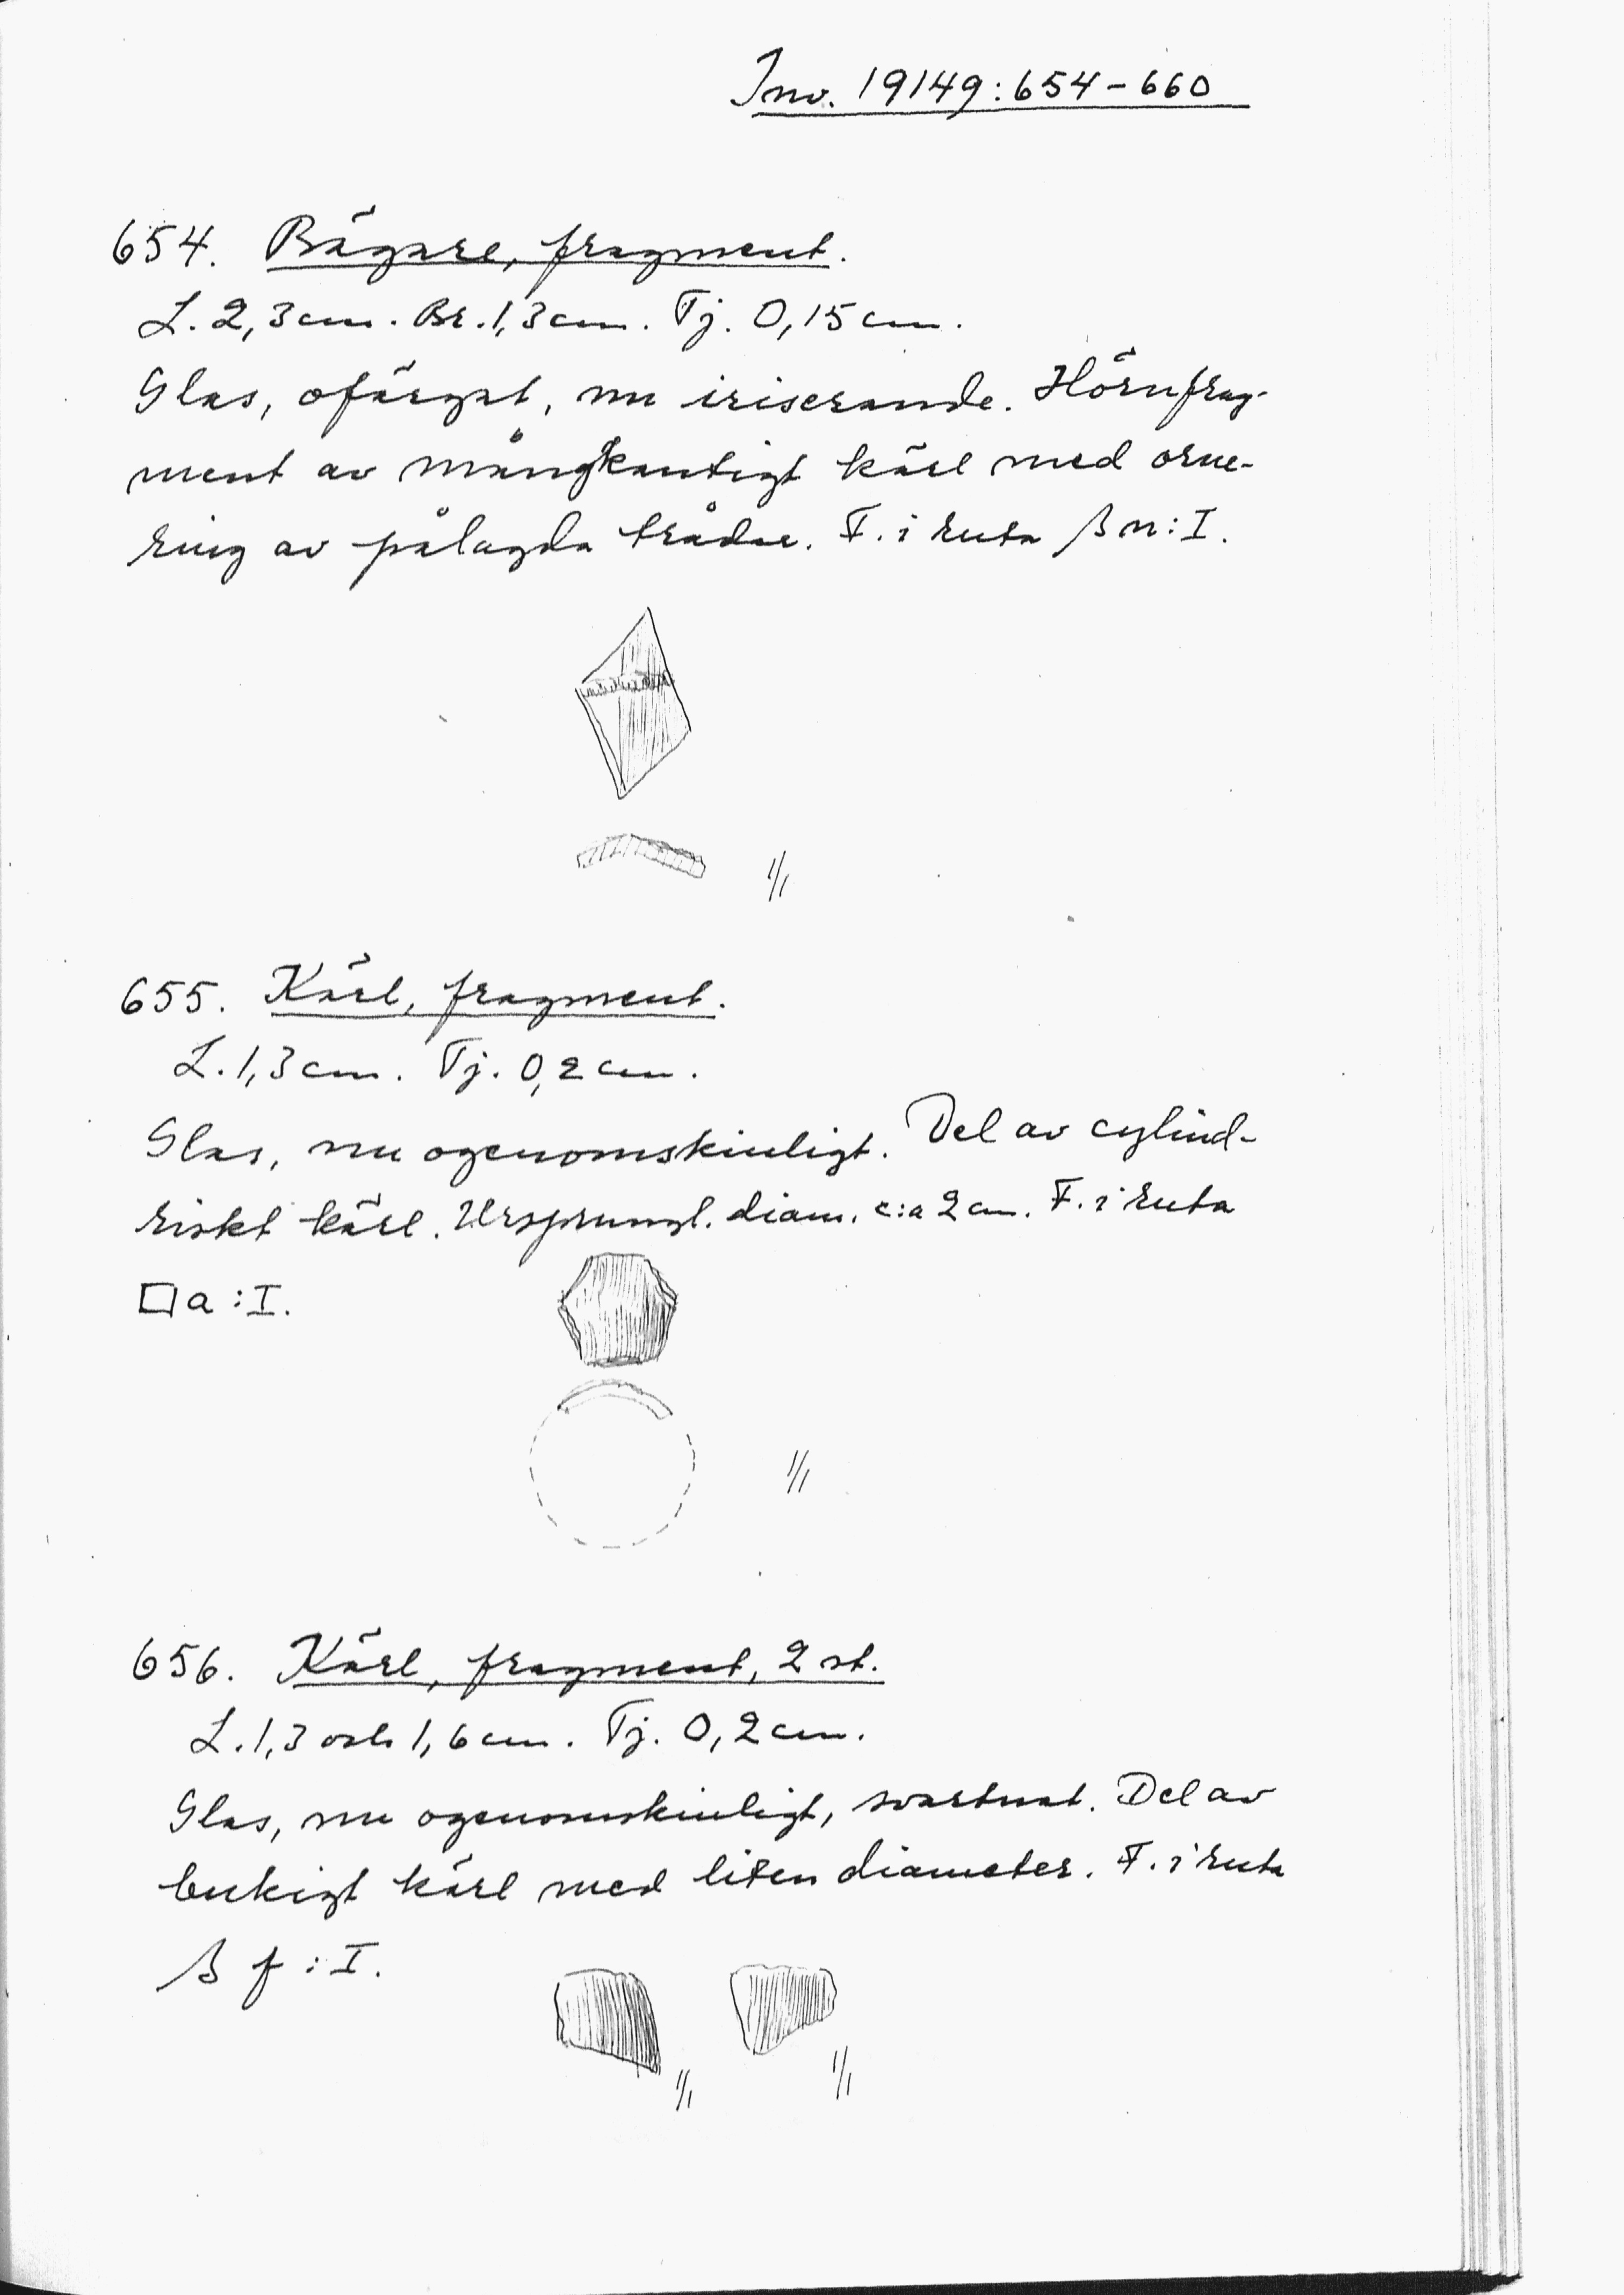 Inv. 19149:654-660
654. Bägare, fragment.
L. 2,3 cm. Br. 1,3 cm. Tj. 0,15 cm.
Glas, ofärgat, nu iriserande. Hörnfrag-
ment av mångkantigt kärl med orne-
ring av pålagda trådar. F. i ruta ßn:I.
1/1
655. Kärl, fragment.
L. 1,3 cm. Tj. 0,2 cm.
Glas, nu ogenomskinligt. Del av cylind-
riskt kärl. Ursprungl. diam. c:a 2 cm. F. i ruta
□a:I.
1/1
656. Kärl, fragment, 2 st.
L. 1,3 och 1,6 cm. Tj. 0,2 cm.
Glas, nu ogenomskinligt, svartnat. Del av
bukigt kärl med liten diameter. F. i ruta
ß f:I.
1/1 1/1